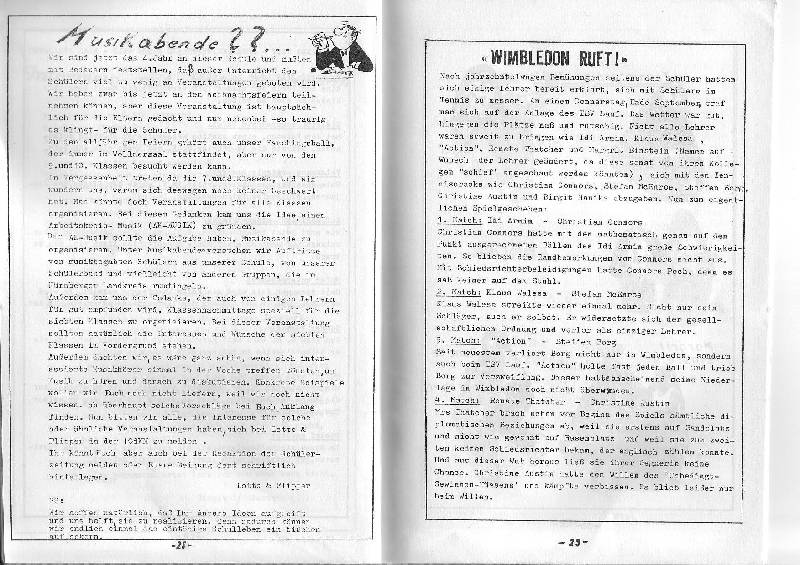 Musikabende ??...
Wir sind jetzt das 4.Jahr an dieser Schule und mußten
mit Bedauern feststellen, daß außer Unterricht den
Schülern viel zu wenig an Veranstaltungen geboten wird.
Wir haben zwar bis jetzt an den Weihnachtsfeiern teil-
nehmen können, aber diese Veranstaltung ist hauptsäch-
lich für die Eltern gedacht und nur nebenbei -so traurig
es klingt- für die Schüler.
Zu den alljährigen Feiern gehört auch unser Faschingsball,
der immer im Vellnersaal stattfindet, aber nur von den
9.und10. Klassen besucht werden kann.
In Vergessenheit treten da die 7.und8.Klassen, und wir
wundern uns, warum sich deswegen noch keiner beschwert
hat. Man könnte doch Veranstaltungen für alle Klassen
organisieren. Bei diesen Gedanken kam uns die Idee einen
Arbeitskreis- Musik (AK-MUSIK) zu gründen.
Der AK-Musik sollte die Aufgabe haben, Musikabende zu
organisieren. Unter Musikabenden verstehen wir Auftritte
von musikbegabten Schülern aus unserer Schule, von unserer
Schülerband und vielleicht von anderen Gruppen, die im
Nürnberger Landkreis rumtingeln.
Außerdem kam uns der Gedanke, der auch von einigen Lehrern
für gut empfunden wird, Klassennachmittage speziell für die
siebten Klassen zu organisieren. Bei dieser Veranstaltung
sollten natürlich die Interessen und Wünsche der siebten
Klassen im Vordergrund stehen.
Außerdem dachten wir, es wäre ganz nütze, wenn sich inter-
essierte Musikhörer einmal in der Woche treffen könnten, um
Musik zu hören und danach zu diskutieren. Konkrete Beispiele
wollen wir Euch noch nicht liefern, weil wir noch nicht
wissen, ob überhaupt solche Vorschläge bei Euch Anklang
finden. Nun bitten wir alle, die Interesse für solche
oder ähnliche Veranstaltungen haben, sich bei Lotto &
Flipper in der 10dKM zu melden .
Ihr könnt Euch aber auch bei der Redaktion der Schüler-
zeitung melden oder Eure Meinung dort schriftlich
hinterlegen.
Lotto & Flipper
PS:
Wir hoffen natürlich, daß Ihr unsere Ideen aufgreift
und uns helft, sie zu realisieren. Denn dadurch können
wir endlich einmal das eintönige Schulleben ein bißchen
auflockern.
-28-
"WIMBLEDON RUFT!"
Nach jahrzehntelangen Bemühungen seitens der Schüler hatten
sich einige Lehrer bereit erklärt, sich mit Schülern im
Tennis zu messen. An einem Donnerstag, Ende September, traf
man sich auf der Anlage des TSV Lauf. Das Wetter war gut,
hingegen die Plätze naß und rutschig. Nicht alle Lehrer
waren soweit zu bringen wie Idi Armin, Klaus Walesa ,
"Action", Renate Thatcher und Harry. Einstein (Namen auf
Wunsch der Lehrer geändert, da diese sonst von ihren Kolle-
gen "schief" angeschaut werden könnten), sich mit den Ten-
niscracks wie Christian Connors, Stefan McEnroe, Steffen Borg,
Christine Austin und Birgit Hanika abzugeben. Nun zum eigent-
lichen Spielgeschehen:
1. Match: Idi Armin - Christian Connors
Christian Connors hatte mit den mathematisch genau auf den
Punkt ausgerechneten Bällen des Idi Armin große Schwierigkei-
ten. So blieben die Randbemerkungen von Connors nicht aus.
Mit Schiedsrichterbeleidigungen hatte Connors Pech, denn es
saß keiner auf dem Stuhl.
2. Match: Klaus Walesa - Stefan McEnroe
Klaus Walesa streikte wieder einmal mehr. Nicht nur sein
Schläger, auch er selbst. Er widersetzte sich der gesell-
schaftlichen Ordnung und verlor als einziger Lehrer.
3. Match: "Action" - Steffen Borg
Seit neuestem verliert Borg nicht nur in Wimbledon, sondern
auch beim TSV Lauf. "Action" holte fast jeden Ball und trieb
Borg zur Verzweiflung. Dieser hatte anscheinend seine Nieder-
lage in Wimbledon noch nicht überwunden.
4. Match: Renate Thatcher - Christine Austin
Mrs Thatcher brach schon vor Beginn des Spiels sämtliche di-
plomatischen Beziehungen ab, weil sie erstens auf Sandplatz
und nicht wie gewohnt auf Rasenplatz und weil sie zum zwei-
ten keinen Schiedsrichter bekam, der englisch zählen konnte.
Und aus dieser Wut heraus ließ sie ihrer Gegnerin keine
Chance. Christine Austin hatte den Willen des "Unbedingt-
Gewinnen-Müssens" und kämpfte verbissen. Es blieb leider nur
beim Willen.
-29-